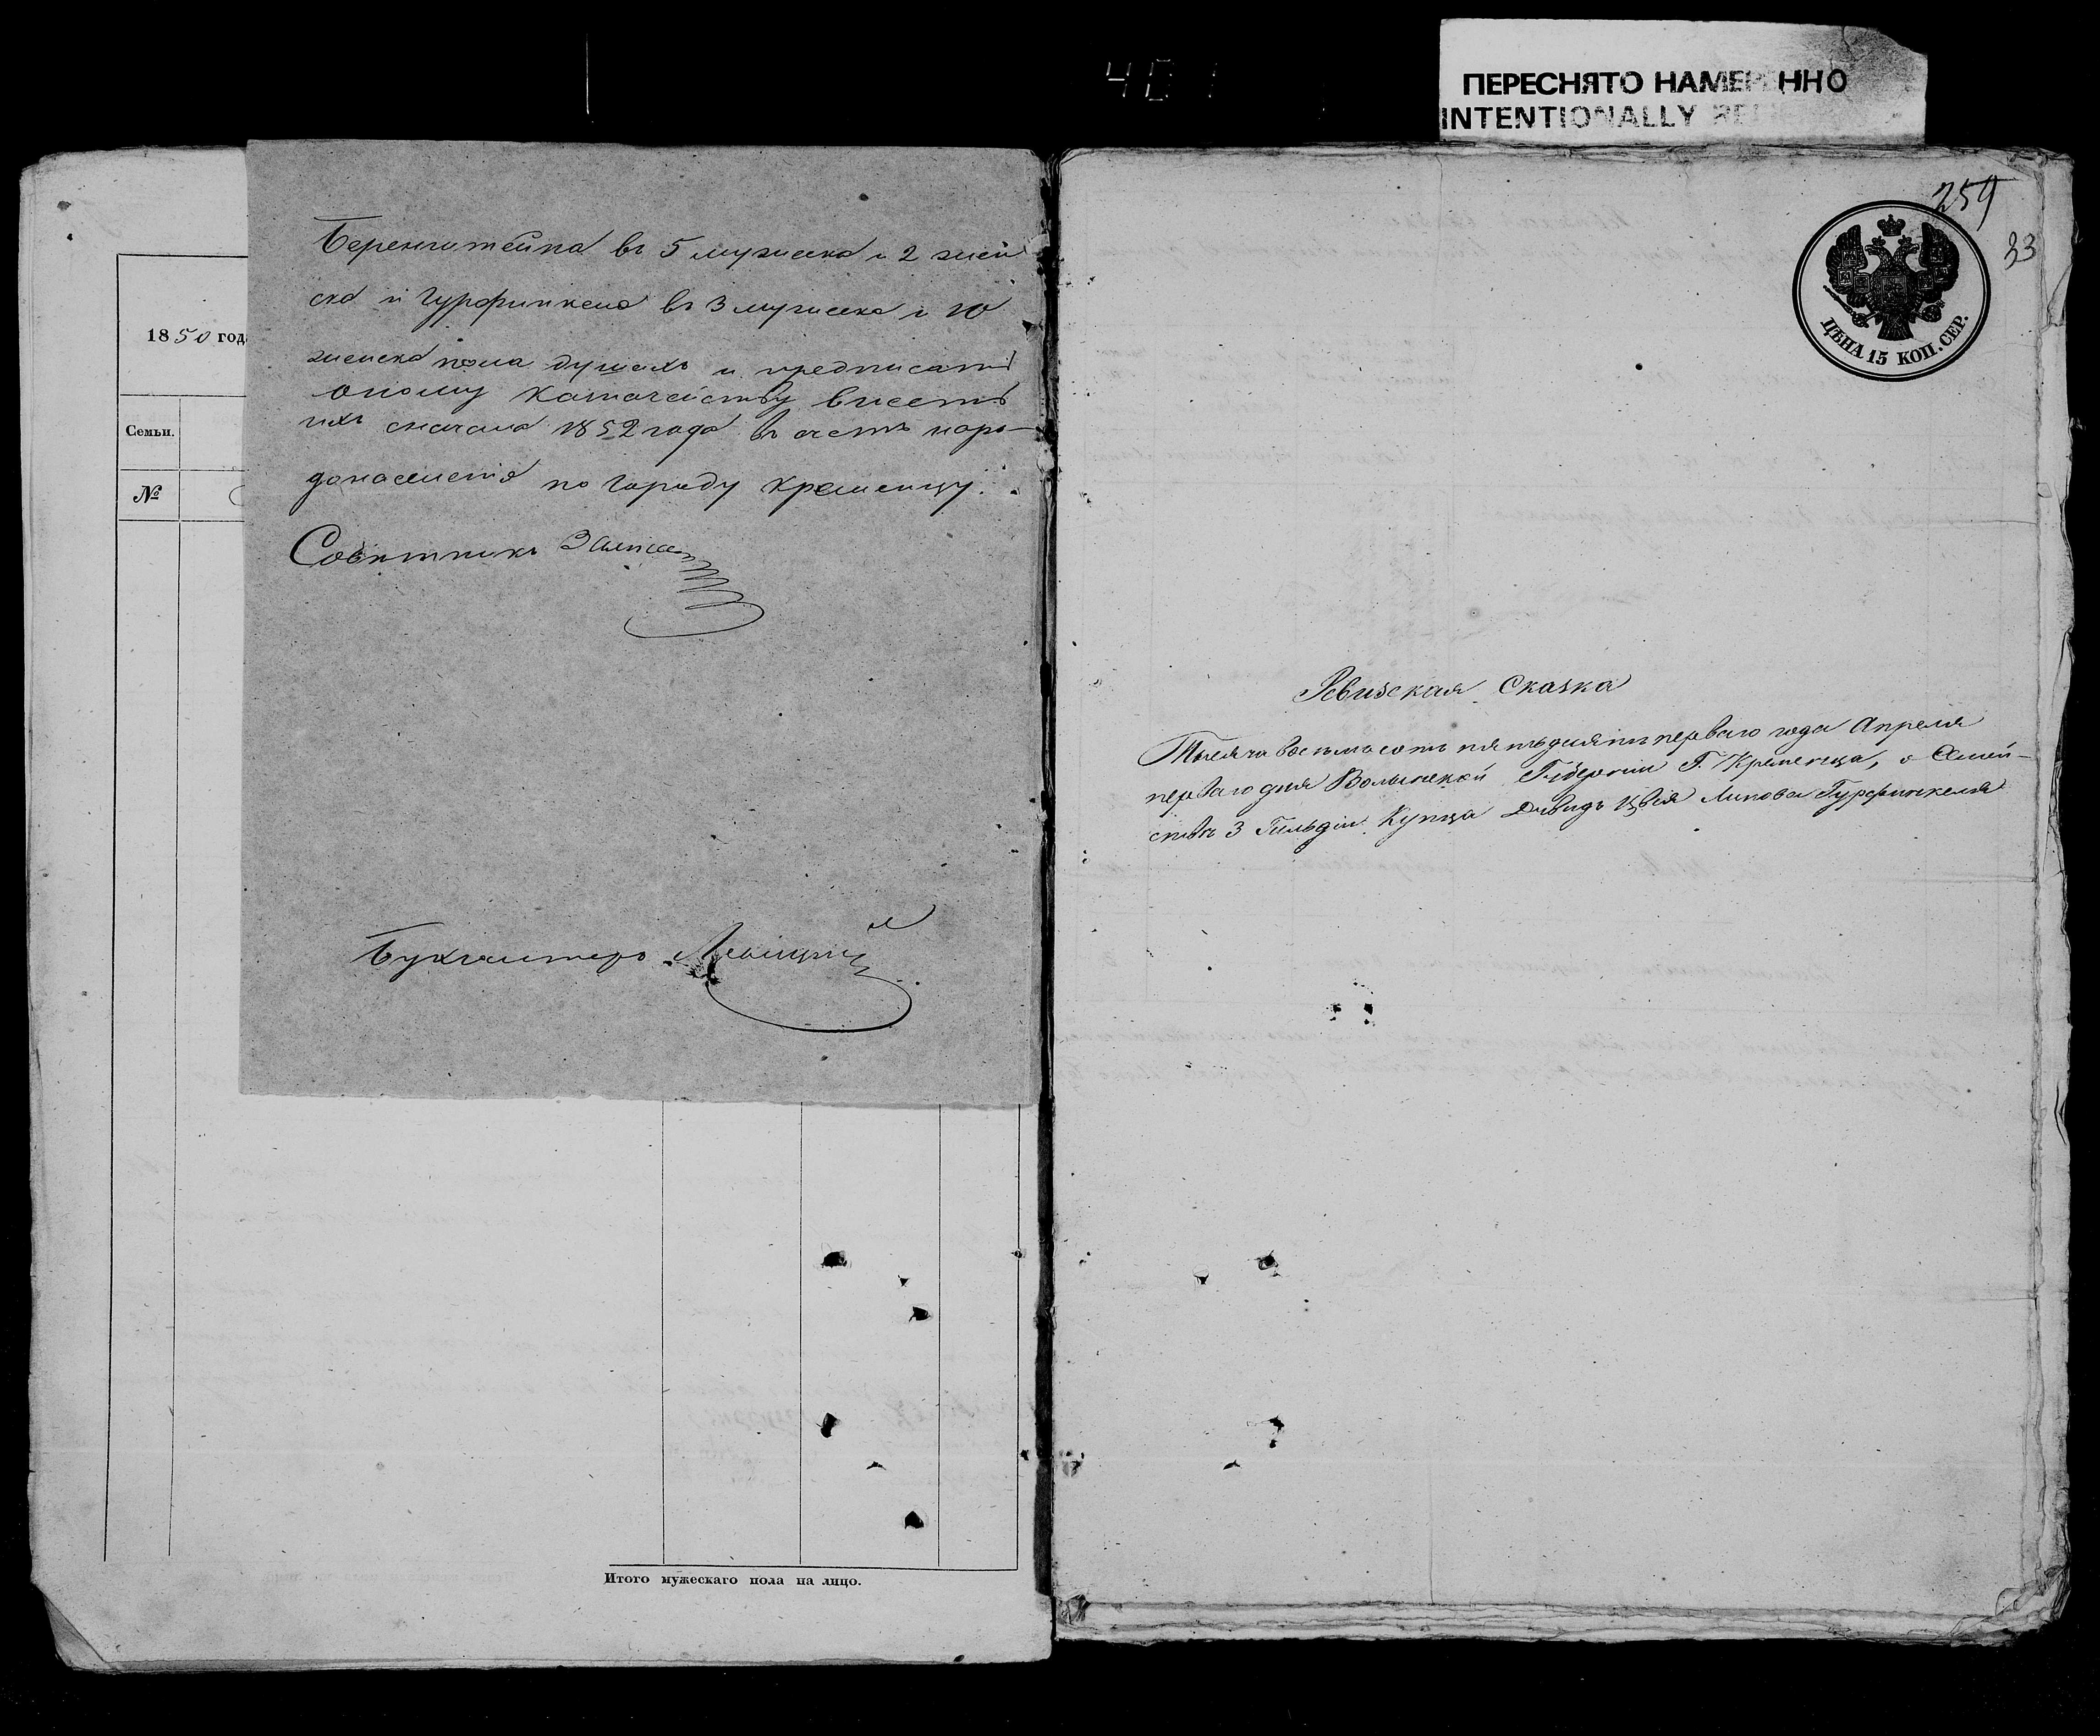 401
ПЕРЕСНЯТО НАМЕРЕННО
INTENTIONALLY
1850 год
Семьи.
№
Беренштейна въ 5 мужеска и 2 жен
ска и Гурфинкеля въ 3 мужеска и 10
женска пола душахъ и предписать
оному Казначейству внесть
ихъ сначала 1852 года въ счетъ наро-
донаселенія по городу Кременцу.
Совѣтникъ
Бухгалтеръ
Итого мужескаго пола на лицо.
259
33
ЦѢНА 15 КОП. СЕР.
Ревизская Сказка
Тысяча восемьсотъ пятьдесятъ перваго года Апреля
перваго дня Волынской Губерніи Г. Кременца, о Семей-
ствѣ 3 Гильдіи Купца Давидъ Цвія Липова Гурфинкеля